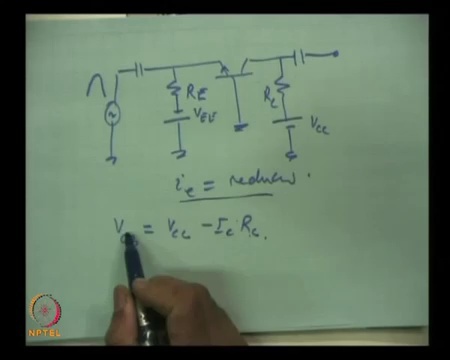 RE
VEE
RC
VCC
ie = reduces.
V = VCC - IC RC.
NPTEL